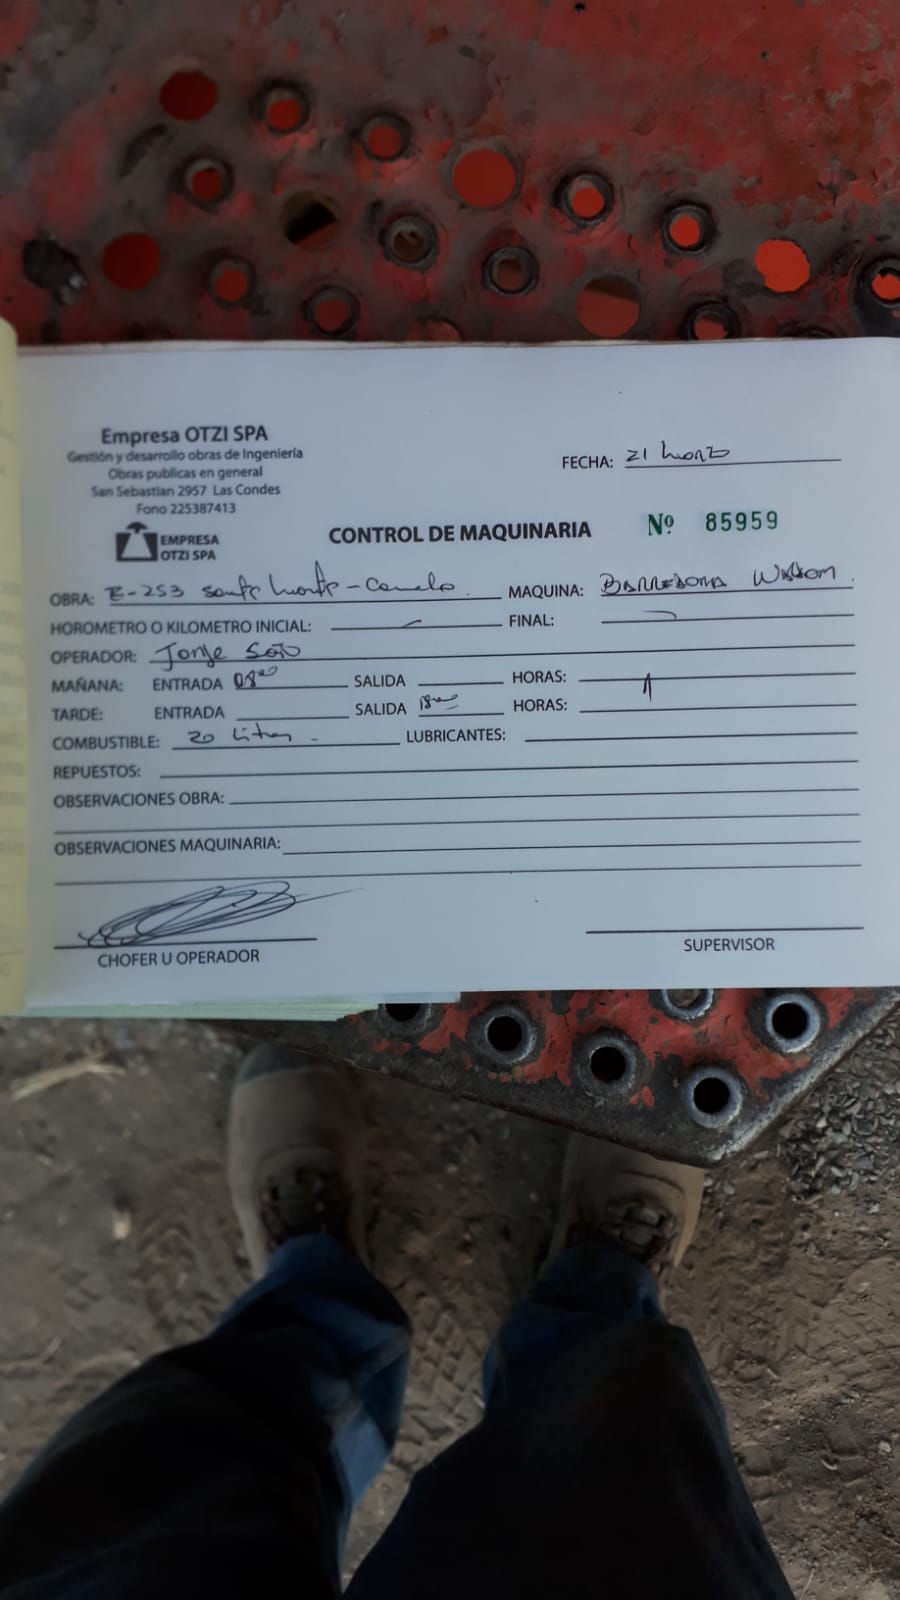 Empresa OTZI SPA
Gestión y desarrollo obras de Ingeniería
Obras publicas en general
San Sebastian 2957 Las Condes
Fono 225387413
EMPRESA
OTZI SPA
FECHA: 21 Marzo
CONTROL DE MAQUINARIA Nº 85959
OBRA: E-253 Santa Marta - Camelo MAQUINA: BARREDORA
HOROMETRO O KILOMETRO INICIAL: FINAL:
OPERADOR: Jorge Soto
MAÑANA: ENTRADA 08⁰⁰ SALIDA HORAS:
TARDE: ENTRADA SALIDA 18⁰⁰ HORAS:
COMBUSTIBLE: 20 Litros - LUBRICANTES:
REPUESTOS:
OBSERVACIONES OBRA:
OBSERVACIONES MAQUINARIA:
CHOFER U OPERADOR SUPERVISOR